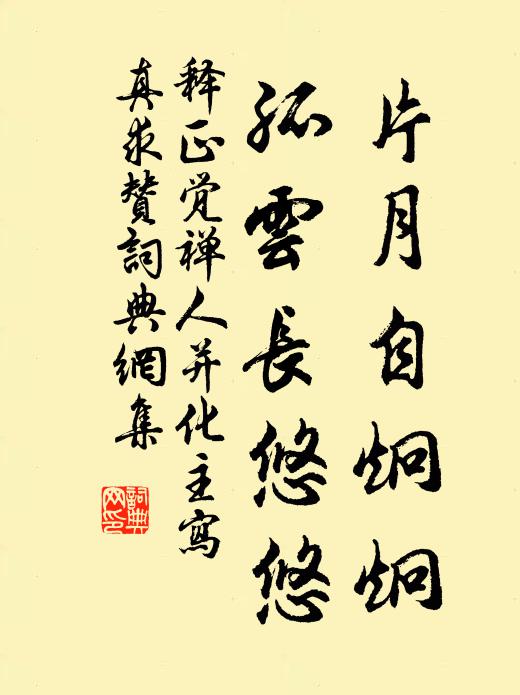 片月自炯炯
孤雲長悠悠
释正觉禅人并化主寫
真求赞詞典網集
詞典
网印